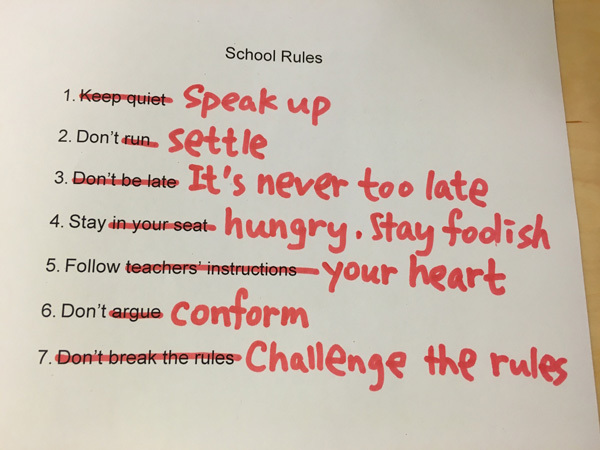 School Rules
1. Keep quiet Speak up
2. Don't run settle
3. Don't be late It's never too late
4. Stay in your seat hungry. Stay foolish
5. Follow teachers' instructions your heart
6. Don't argue conform
7. Don't break the rules Challenge the rules